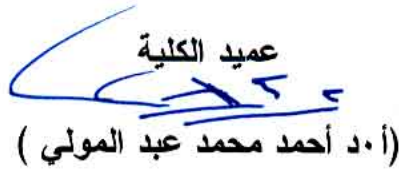 عميد الكلية
(أ.د أحمد محمد عبد المولي )